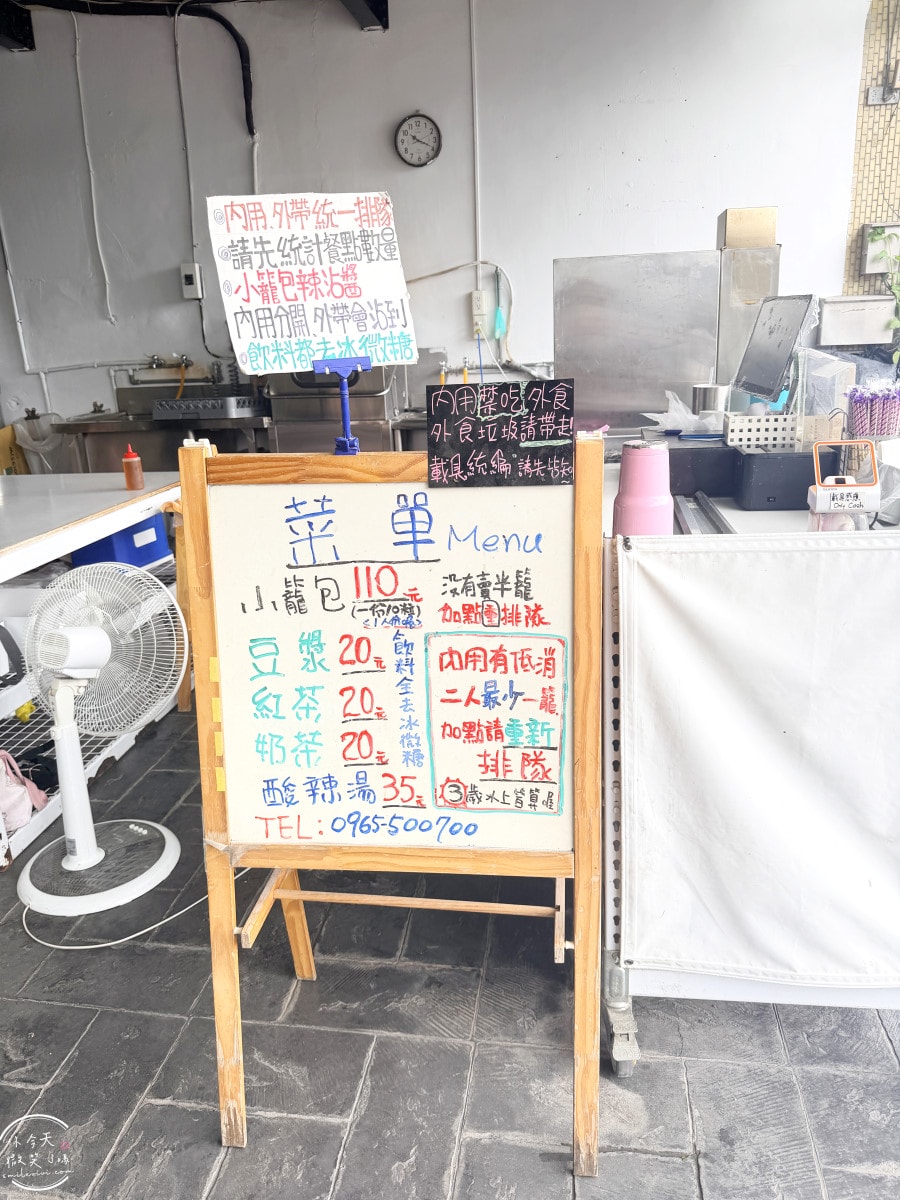 内用.外帶統一排隊
請先統計餐點數量
小籠包辣沾醬
內用分開.外帶會沾到
飲料都去冰微糖
內用禁吃外食
外食垃圾請帶走!
載具統編 請先告知~
菜單 Menu
小籠包 110元
(一份10顆)
沒有賣半籠
加點重排隊
豆漿 20元
紅茶 20元
奶茶 20元
飲料全去冰微糖
酸辣湯 35元
內用有低消
二人最少一籠
加點請重新
排隊
③歲以上皆算喔
TEL: 0965-500700
載具感應
Only Cash
你今天
微笑了嗎